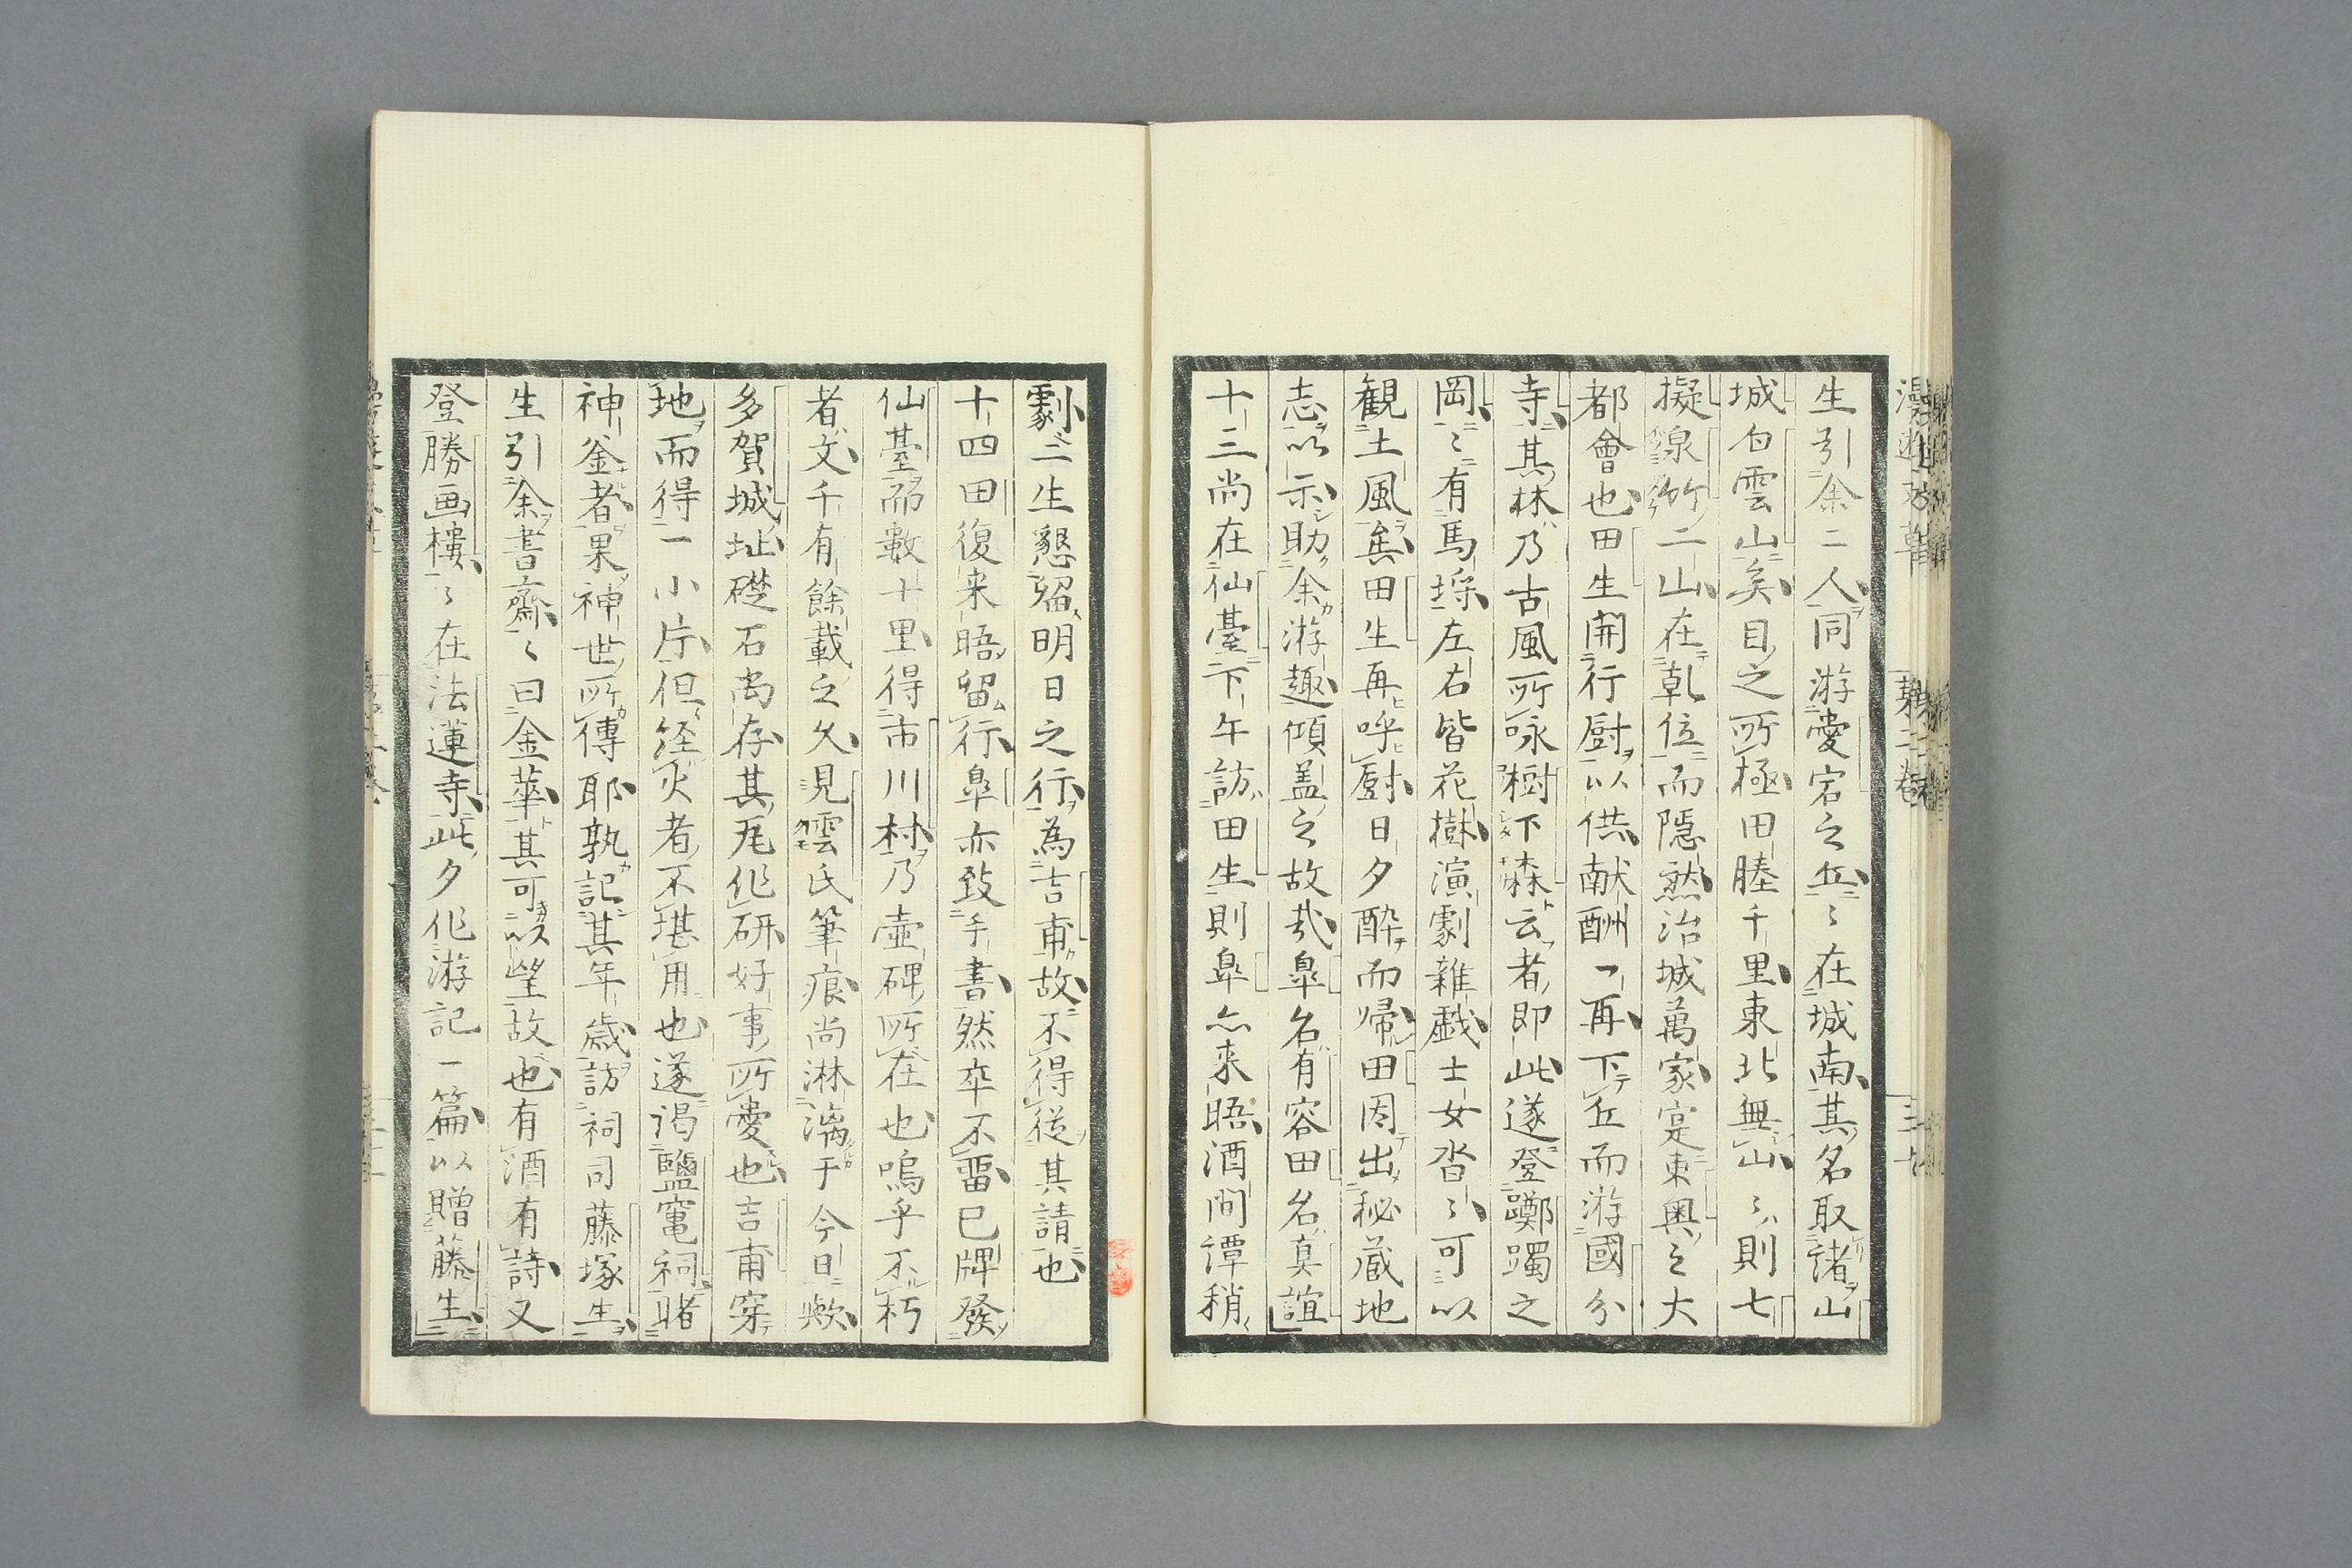 生引余二人同游愛宕之丘〻在城南其名取諸山
城白雲山矣目之所極田塍千里東北無山〻則七
擬泉𡵅二山在乹位而隠然治城萬家寔東奥之大
都會也田生開行厨以供献酬一再下丘而游國分
寺其林乃古風所咏樹下森云者即此遂登躑躅之
岡〻有馬埒左右皆花樹演劇雜戯士女沓〻可以
観土風矣田生再呼厨日夕酔而帰田因出秘蔵地
志以示助余游趣傾盖之故哉皐名有容田名真誼
十三尚在仙臺下午訪田生則皐亦来晤酒間譚稍
劇二生懇留明日之行為吉甫故不得従其請也
十四田復来晤留行皐亦致手書然卒不畱巳牌發
仙臺而數十里得市川村乃壷碑所在也嗚乎不朽
者文千有餘載之久見雲氏筆痕尚淋漓于今日歟
多賀城址礎石尚存其瓦作研好事所愛也吉甫穿
地而得一小片但経火者不堪用也遂謁鹽竃祠睹
神釜者果神世所傳耶孰記其年歳訪祠司藤塚生
生引余書齋〻曰金華其可以望故也有酒有詩又
登勝画樓〻在法蓮寺此夕作游記一篇以贈藤生